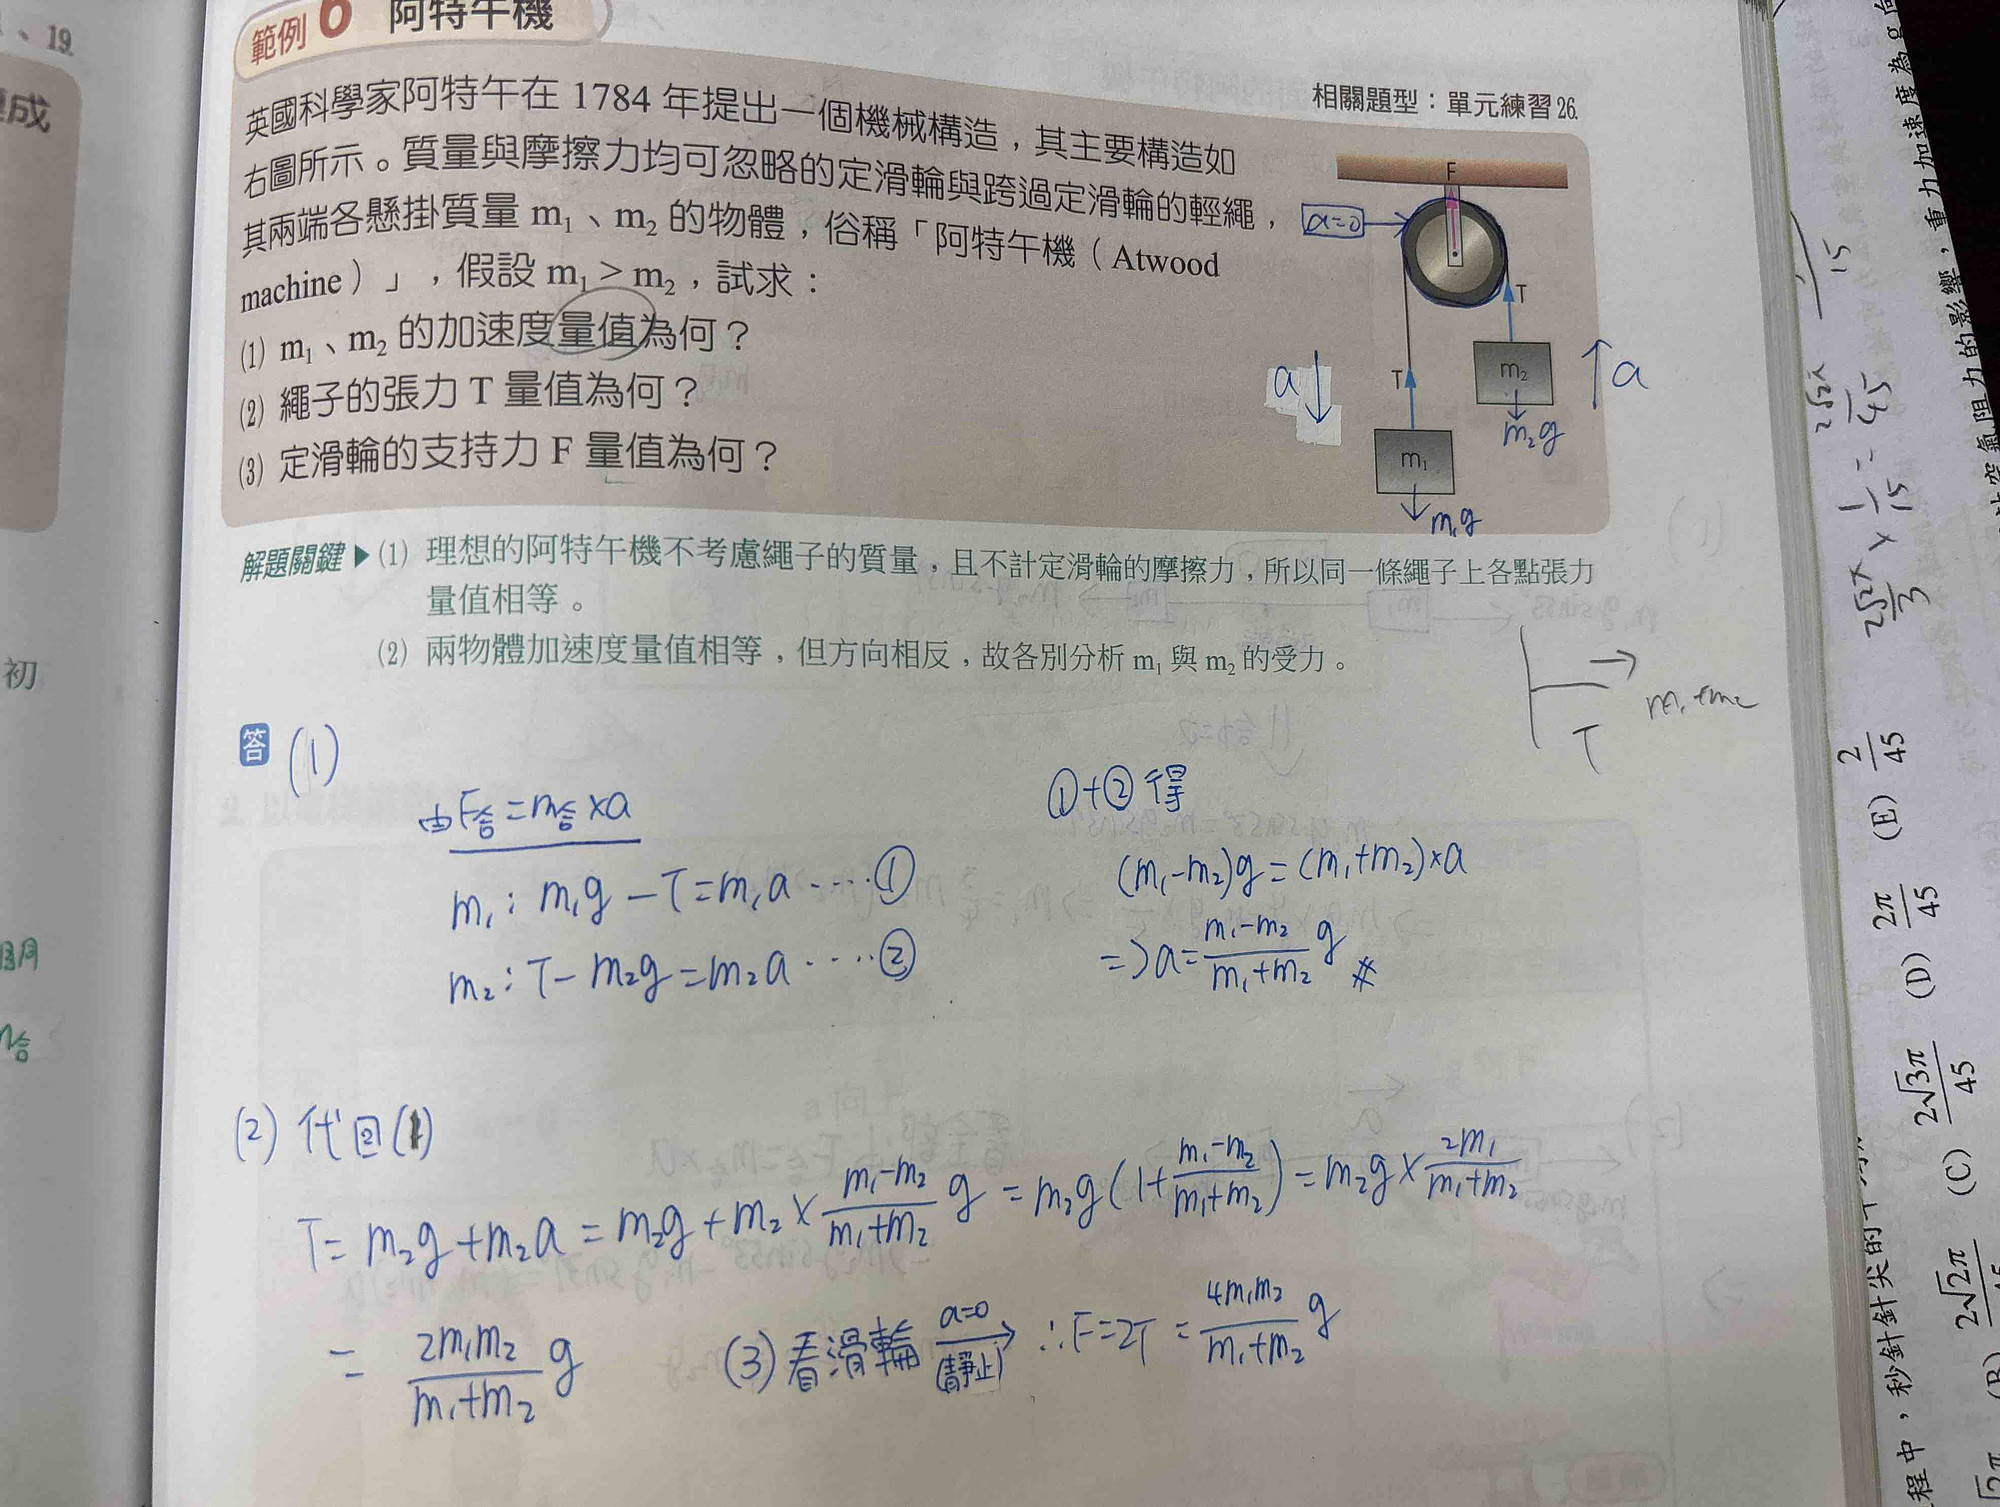 、19
範例6 阿特午機
相關題型：單元練習26.
英國科學家阿特午在 1784 年提出一個機械構造，其主要構造如
右圖所示。質量與摩擦力均可忽略的定滑輪與跨過定滑輪的輕繩，
其兩端各懸掛質量 m₁、m₂ 的物體，俗稱「阿特午機（Atwood
machine）」，假設 m₁ > m₂，試求：
(1) m₁、m₂ 的加速度量值為何？
(2) 繩子的張力 T 量值為何？
(3) 定滑輪的支持力 F 量值為何？
F
a=0
T
T
m₂
m₂g
a
a
m₁
m₁g
解題關鍵▶(1) 理想的阿特午機不考慮繩子的質量，且不計定滑輪的摩擦力，所以同一條繩子上各點張力
量值相等。
(2) 兩物體加速度量值相等，但方向相反，故各別分析 m₁ 與 m₂ 的受力。
m₁+m₂
T
答 (1)
由F合=m合×a
m₁：m₁g－T=m₁a‧‧‧‧①
m₂：T－m₂g=m₂a‧‧‧‧②
①+②得
(m₁-m₂)g=(m₁+m₂)×a
=>a=\frac{m₁-m₂}{m₁+m₂}g #
(2) 代回(1)
T=m₂g+m₂a=m₂g+m₂×\frac{m₁-m₂}{m₁+m₂}g=m₂g(1+\frac{m₁-m₂}{m₁+m₂})=m₂g×\frac{2m₁}{m₁+m₂}
=\frac{2m₁m₂}{m₁+m₂}g
(3)看滑輪 a=0 (靜止) ∴F=2T=\frac{4m₁m₂}{m₁+m₂}g
成
初
合
的影響，重力加速度為g
程中，秒針針尖的
(C) \frac{2\sqrt{3}π}{45} (D) \frac{2π}{45} (E) \frac{2}{45}